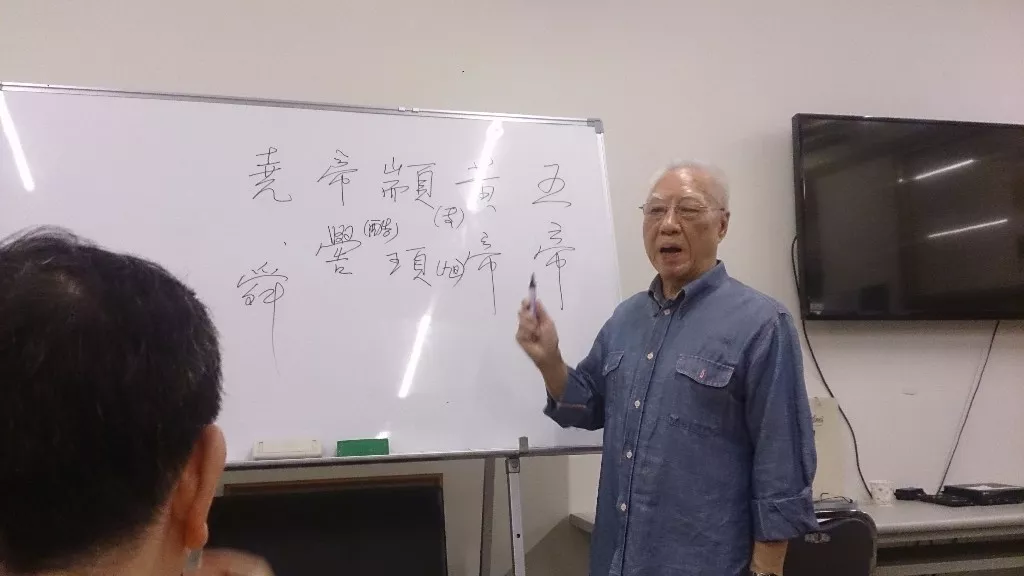 五帝
黃帝
顓頊(旭)
帝嚳(酷)
堯、舜